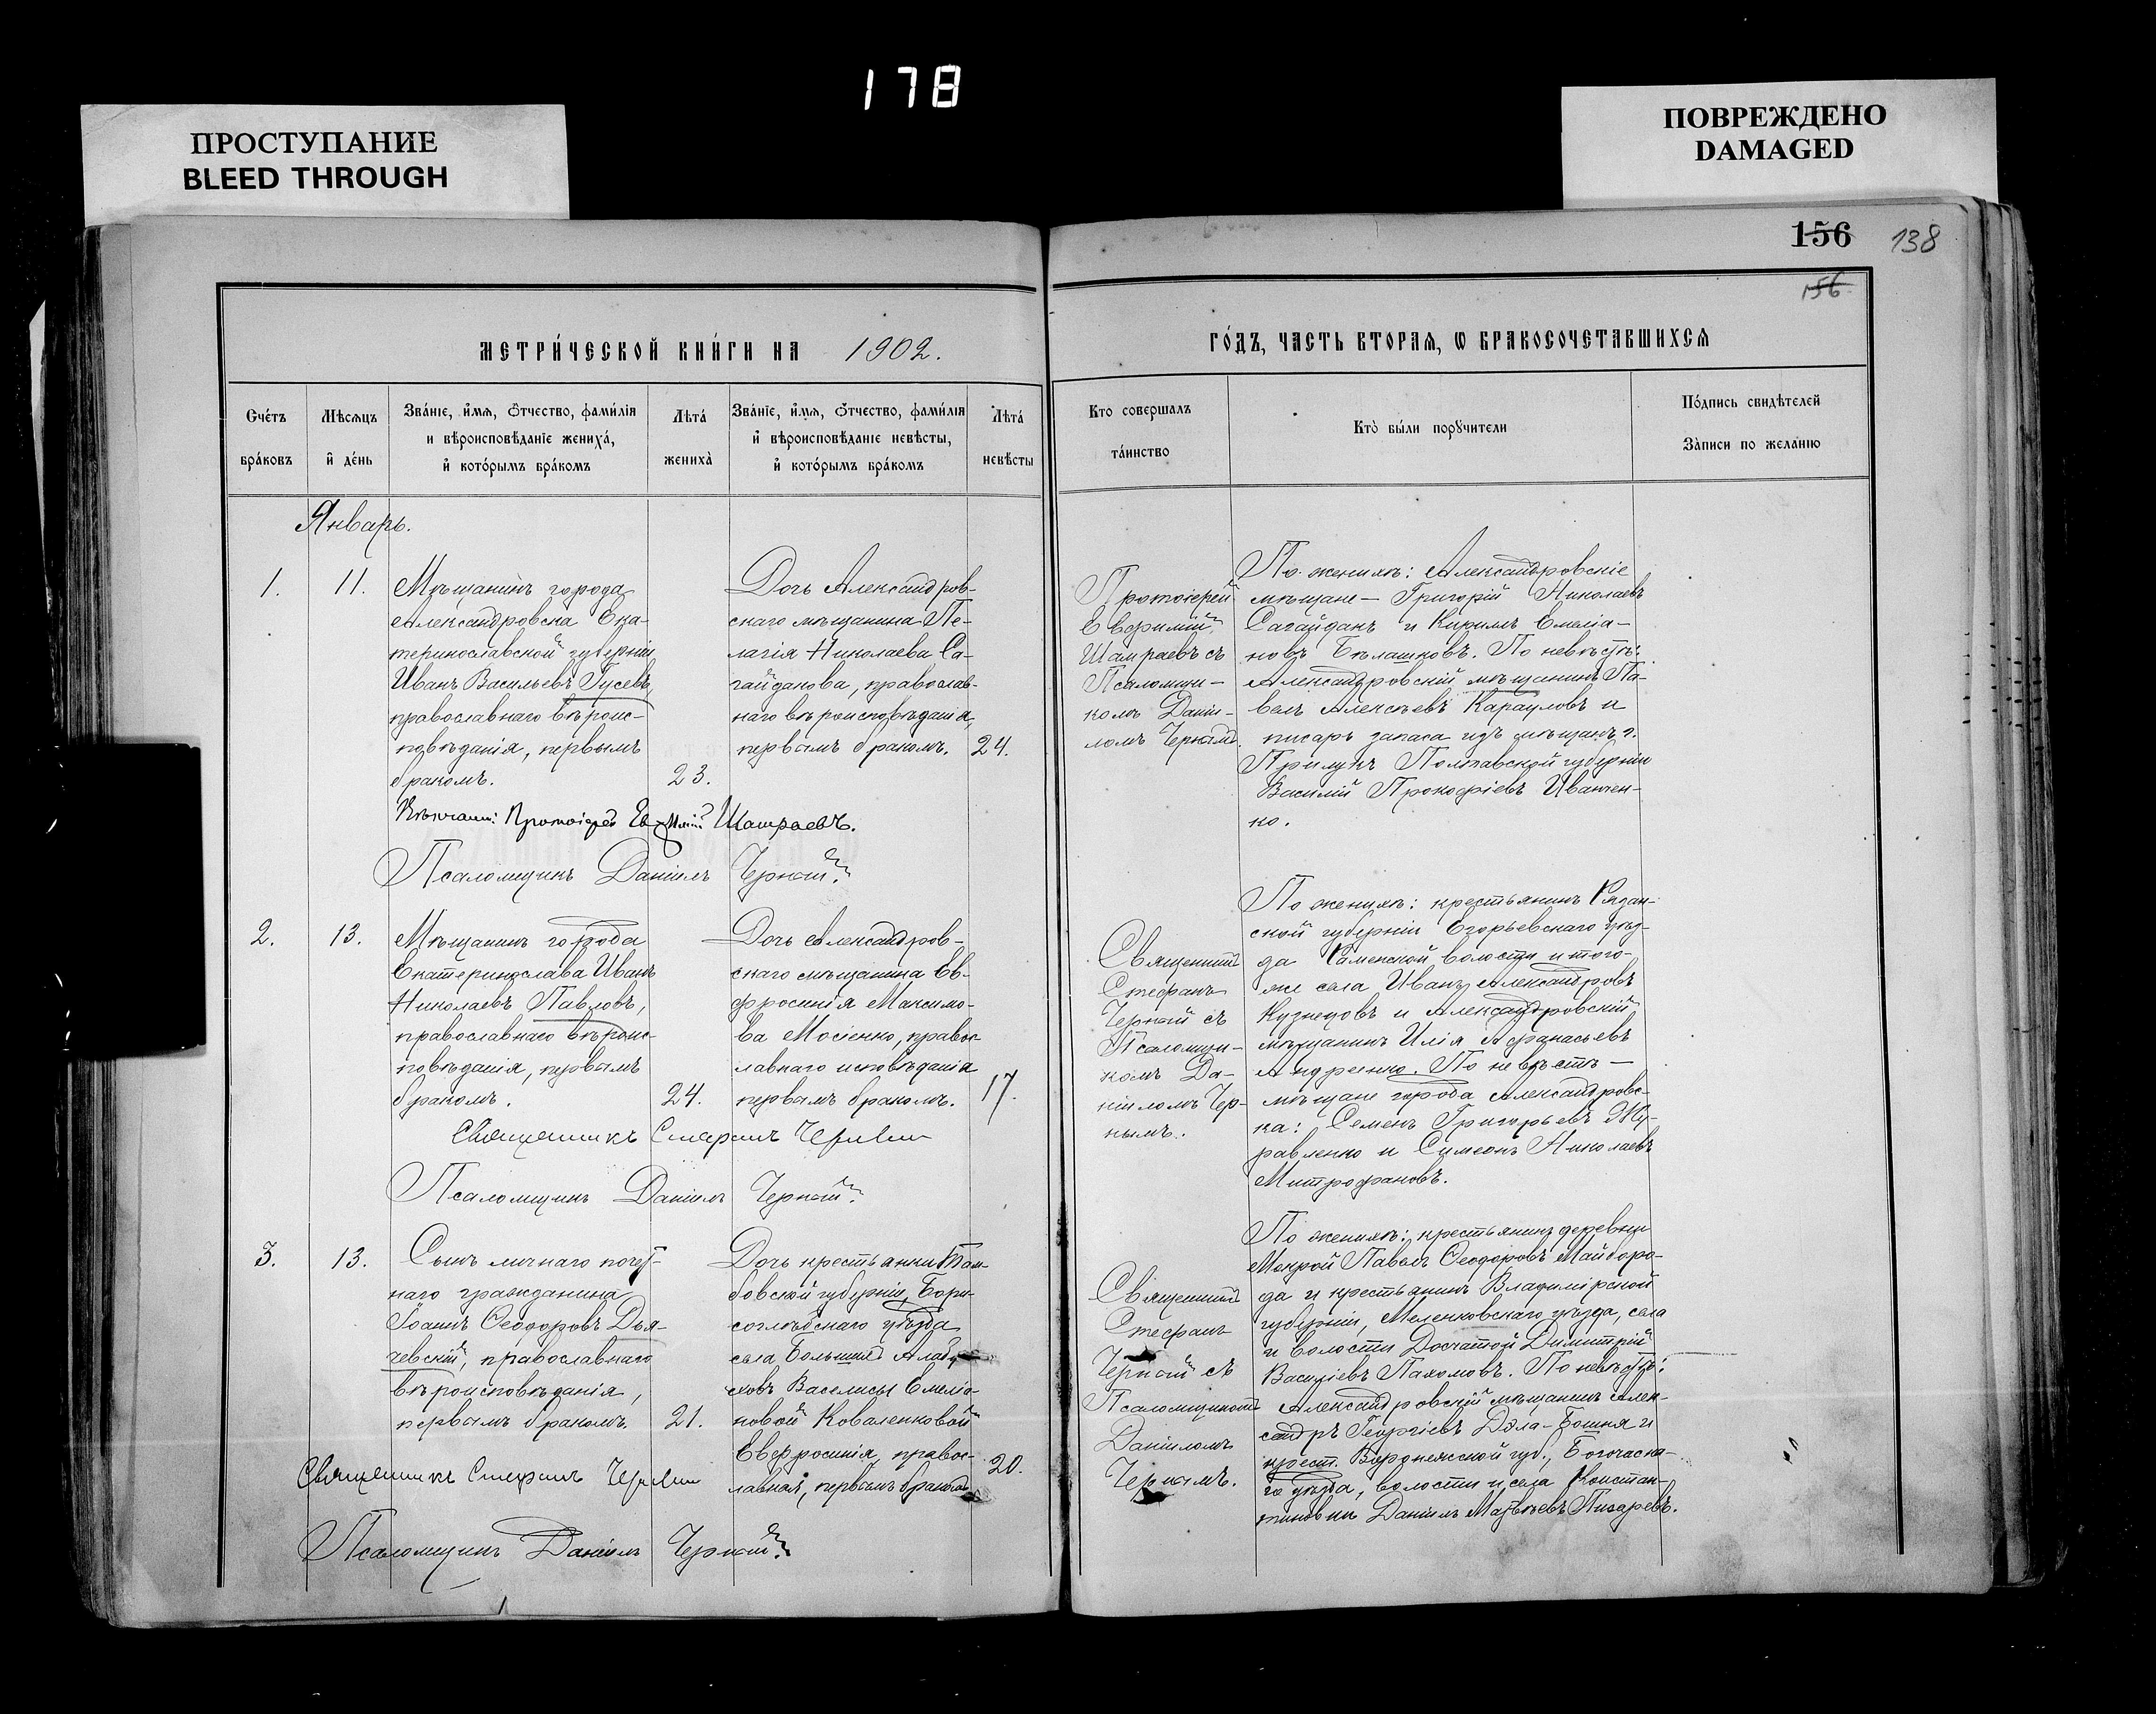 178
ПРОСТУПАНИЕ
BLEED THROUGH
ПОВРЕЖДЕНО
DAMAGED
156 138
156
МЕТРИ́ЧЕСКОЙ КНИ́ГИ НА 1902.
ГО́ДЪ, ЧАСТЬ ВТОРАЯ, Ѡ БРАКОСОЧЕТАВШИХСЯ
Сче́тъ
бра́ковъ
Мѣсяцъ
и де́нь
Зва́ніе, и́мя, ѻ́тчество, фами́лія
и вѣроисповѣданіе жениха̀,
и кото́рымъ бра́комъ
Лѣта̀
жениха̀
Зва́ніе, и́мя, ѻ́тчество, фами́лія
и вѣроисповѣданіе невѣсты,
и кото́рымъ бра́комъ
Лѣта̀
невѣсты
Кто совершалъ
та́инство
Кто̀ бы́ли порꙋчители
По́дпись свидѣтелей
За̀писи по жела́нію
Январь.
1.
11.
Мѣщанинъ города
Александровска Ека-
теринославской губерніи
Иванъ Васильевъ Гусевъ,
православнаго вѣроис-
повѣданія, первымъ
бракомъ.
23.
Дочь Александров-
скаго мѣщанина Пе-
лагія Николаева Са-
гайданова, православ-
наго вѣроисповѣданія,
первымъ бракомъ.
24.
Протоіерей
Евфимій
Шамраевъ съ
Псаломщи-
комъ Даніи-
ломъ Чернымъ.
По женихѣ: Александровскіе
мѣщане — Григорій Николаевъ
Сагайданъ и Кирилъ Емеліа-
новъ Бѣлашковъ. По невѣстѣ:
Александровскій мѣщанинъ Па-
велъ Алексѣевъ Карауловъ и
писарь запаса изъ мѣщанъ г.
Прилукъ Полтавской губерніи
Василій Прокофіевъ Иванчен-
ко.
Протоіерей Евфимій Шамраевъ.
Псаломщикъ Даніилъ Черный
2.
13.
Мѣщанинъ города
Екатеринослава Иванъ
Николаевъ Павловъ,
православнаго вѣроис-
повѣданія, первымъ
бракомъ.
24.
Дочь Александров-
скаго мѣщанина Ев-
фросинія Максимо-
ва Мосіенко, правос-
лавнаго исповѣданія
первымъ бракомъ.
17.
Священникъ
Стефанъ
Черный съ
Псаломщи-
комъ Да-
ніиломъ Чер-
нымъ.
По женихѣ: крестьянинъ Рязан-
ской губерніи Егорьевскаго уѣз-
да Раменской волости и того-
же села Иванъ Александровъ
Кузнецовъ и Александровскій
мѣщанинъ Илія Афанасьевъ
Андреенко. По невѣстѣ —
мѣщане города Александровс-
ка: Семенъ Григорьевъ Жу-
равленко и Симеонъ Николаевъ
Митрофановъ.
Священникъ Стефанъ Черный
Псаломщикъ Даніилъ Черный
3.
13.
Сынъ личнаго почет-
наго гражданина
Іоаннъ Ѳеодоровъ Дья-
чевскій, православнаго
вѣроисповѣданія,
первымъ бракомъ.
21.
Дочь крестьянки Там-
бовской губерніи, Бори-
соглѣбскаго уѣзда
села Большихъ Алабу-
ховъ Василисы Емеліа-
новой Коваленковой
Евфросинія, правос-
лавная, первымъ бракомъ
20.
Священникъ
Стефанъ
Черный съ
Псаломщикомъ
Даніиломъ
Чернымъ.
По женихѣ: крестьянинъ деревни
Мокрой Павелъ Ѳеодоровъ Майборо-
да и крестьянинъ Владимірской
губерніи, Меленковскаго уѣзда, села
и волости Досчатой Димитрій
Василіевъ Пахомовъ. По невѣстѣ:
Александровскій мѣщанинъ Алек-
сандръ Георгіевъ Дола-Бошня и
крест. Воронежской губ., Богучаска-
го уѣзда, волости и села Констан-
тиновки Даніилъ Матвѣевъ Писаревъ.
Священникъ Стефанъ Черный
Псаломщикъ Даніилъ Черный